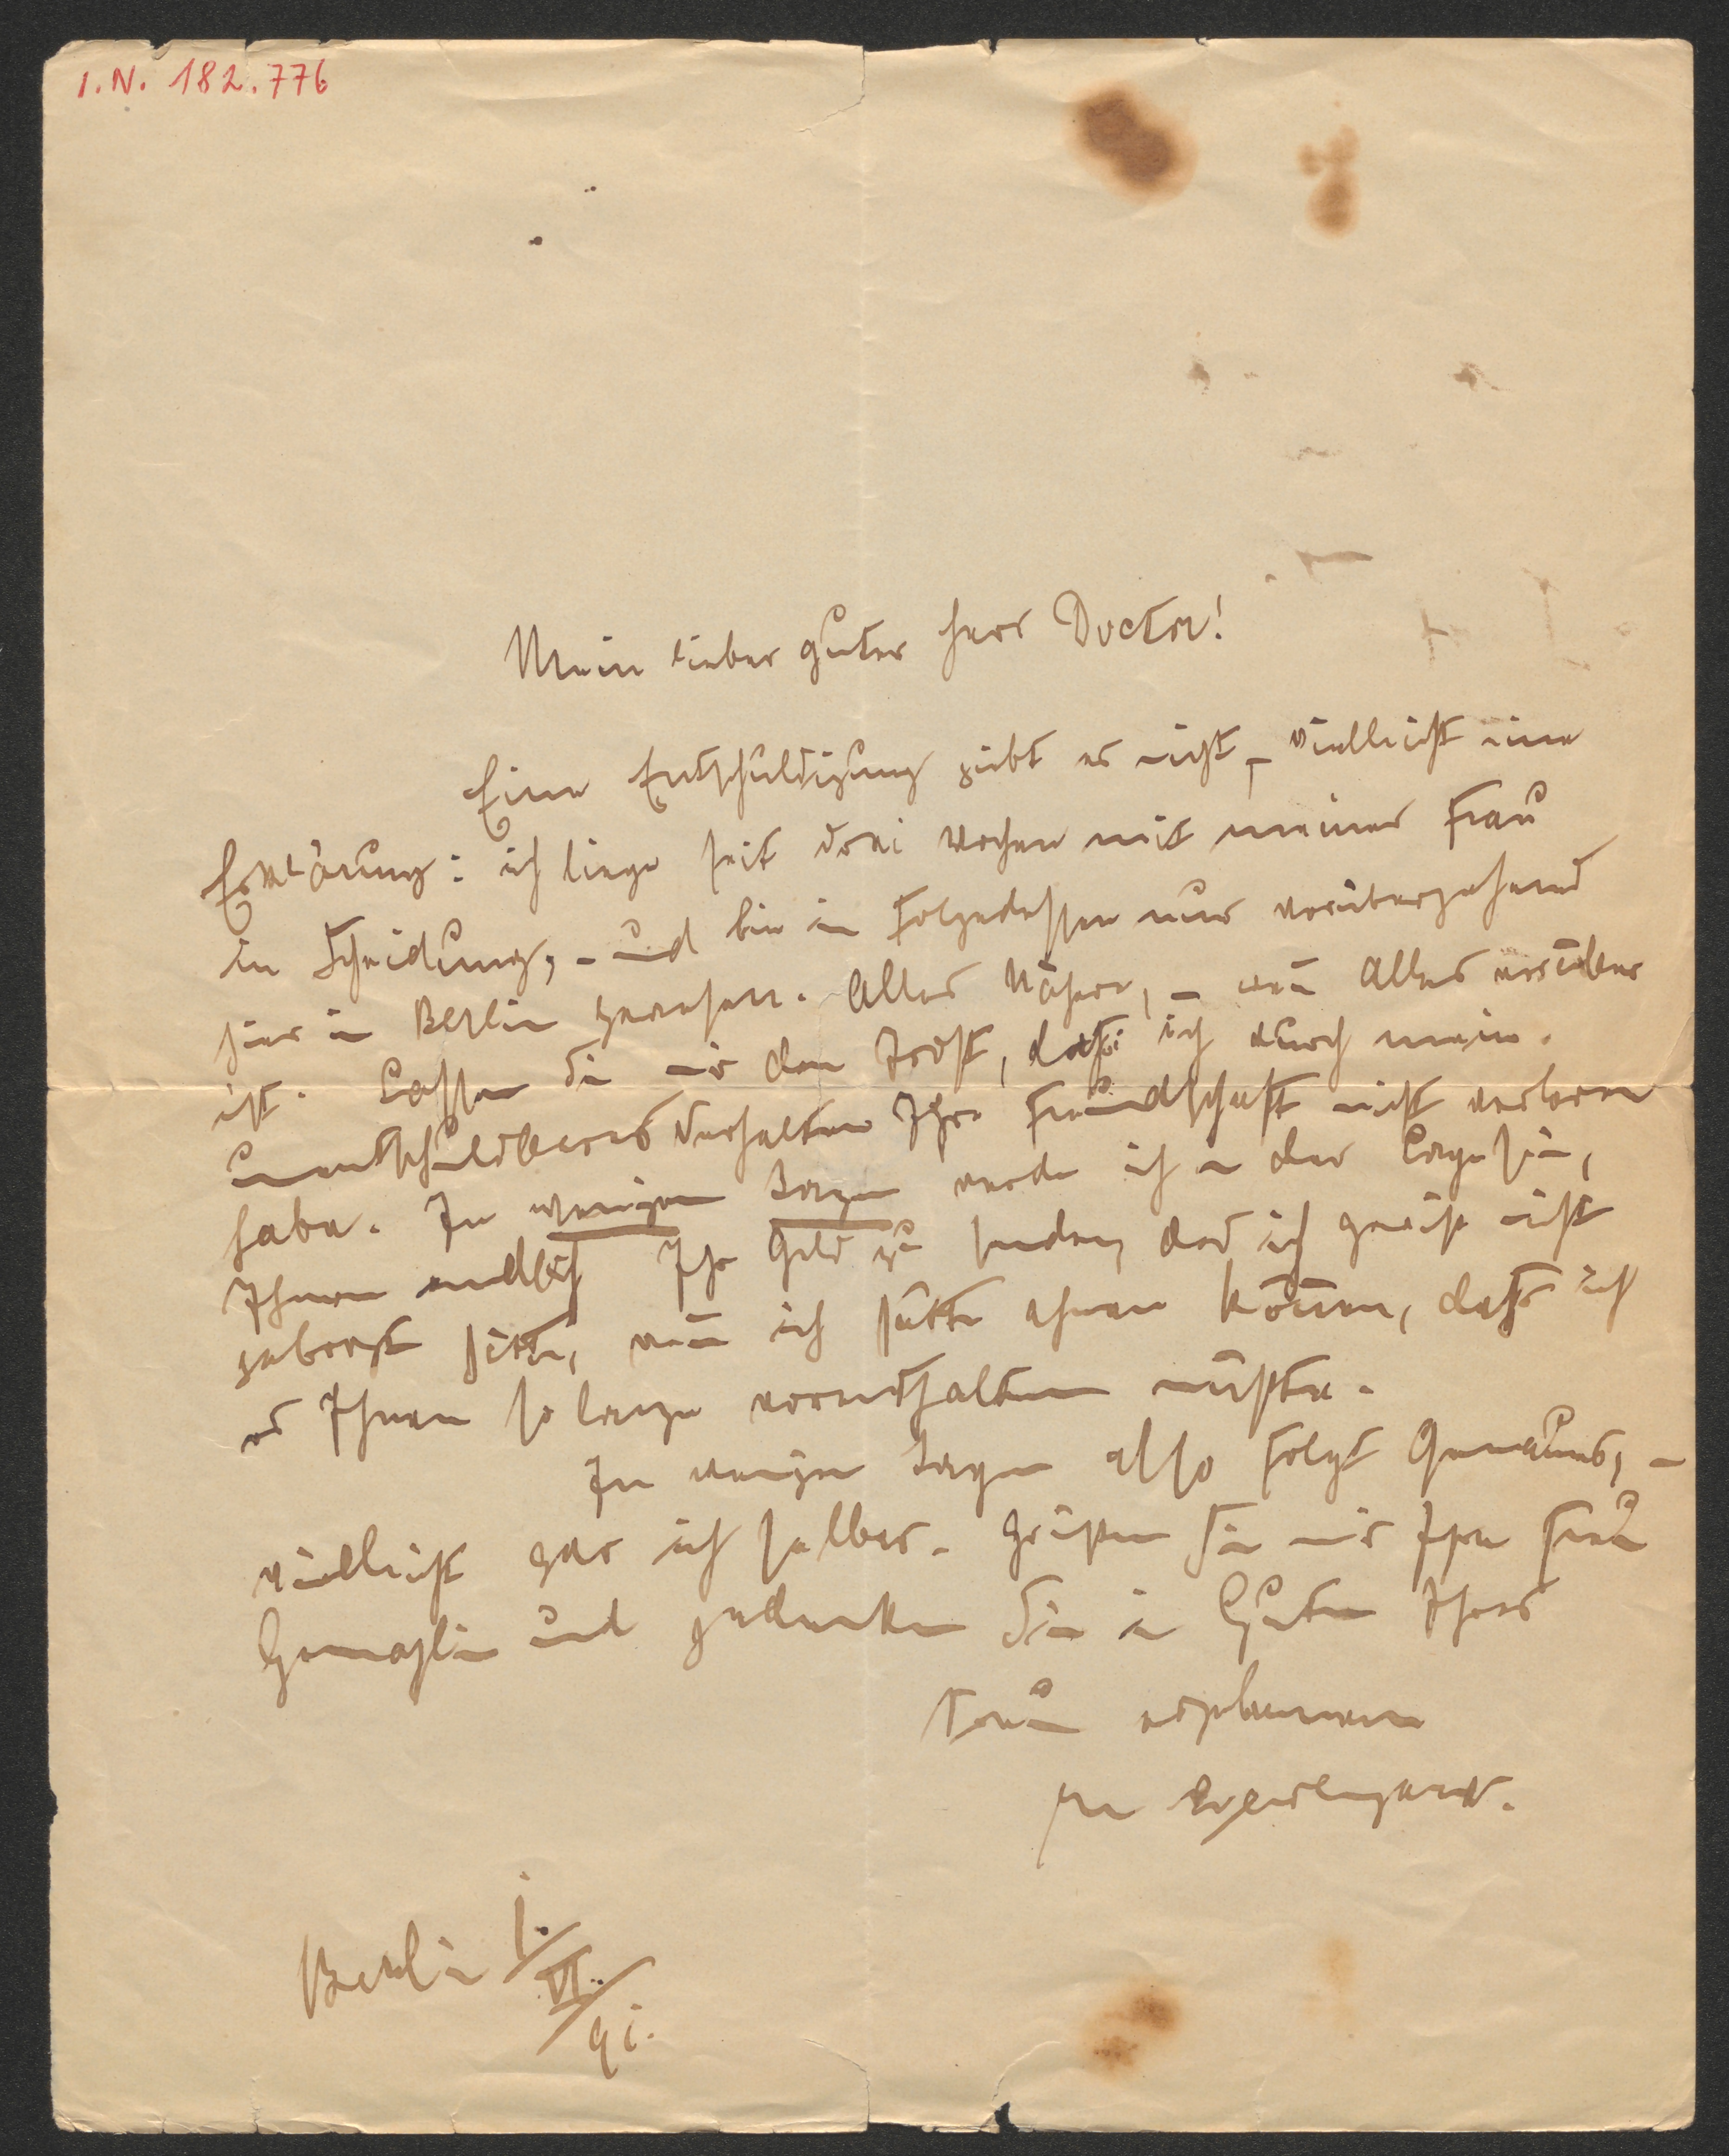 I.N. 182.776
Mein lieber guter Herr Doctor!
Eine Entschuldigung giebt es nicht, – vielleicht eine
Erklärung: ich liege seit drei Wochen mit meiner Frau
in Scheidung, – und bin in Folgedessen nur vorübergehend
hier in Berlin gewesen. Alles Nähere, – wen̄ Alles vorüber
ist. Lassen Sie mir den Trost, dass ich durch mein
unentschuldbares Verhalten Ihre Freundschaft nicht verloren
habe. In wenigen Tagen werde ich in der Lage sein,
Ihnen endlich Ihr Geld zu senden, das ich gewiß nicht
geborgt hätte, wen̄ ich hätte ahnen kön̄en, dass ich
es Ihnen so lange vorenthalten müßte.
In wenigen Tagen also folgt Genaues, –
vielleicht gar ich selber. Grüßen Sie mir Ihre Frau
Gemahlin und gedenken Sie in Guten Ihres
treu ergebenen
Berlin 1./VI./91.